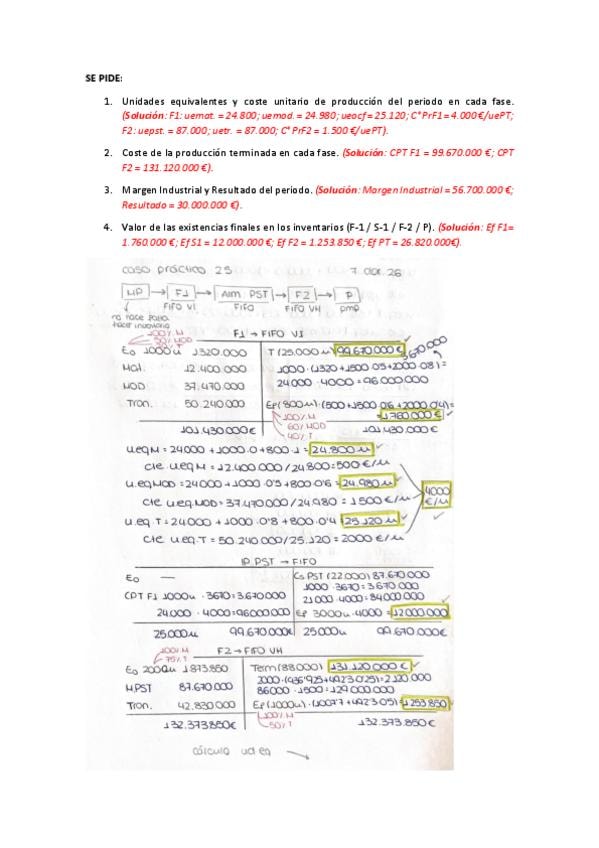 SE PIDE:
1. Unidades equivalentes y coste unitario de producción del periodo en cada fase.
(Solución: F1: uemat. = 24.800; uemod. = 24.980; ueocf= 25.120; CªPrF1= 4.000€/uePT;
F2: uepst. = 87.000; uetr. = 87.000; CªPrF2 = 1.500 €/uePT).
2. Coste de la producción terminada en cada fase. (Solución: CPT F1 = 99.670.000 €; CPT
F2 = 131.120.000 €).
3. Margen Industrial y Resultado del periodo. (Solución: Margen Industrial = 56.700.000 €;
Resultado = 30.000.000 €).
4. Valor de las existencias finales en los inventarios (F-1 / S-1 / F-2 / P). (Solución: Ef F1=
1.760.000 €; Ef S1 = 12.000.000 €; Ef F2 = 1.253.850 €; Ef PT = 26.820.000€).
caso práctico 25
MP → F1 → Alm. PST → F2 → P
FIFO VI FIFO FIFO VH pmp
no hace falta
hacer inventario
F1 → FIFO VI
100% M
50% MOD
Eo 1000u 1320.000
T (25.000u) 99.670.000€
3670.000
Mat. 12.400.000
1000·(1320+1500·0'5+2000·0'8)=
MOD 37.470.000
24000·4000=96.000.000
Tran. 50.240.000
Ef(800u)·(500+1500·0'6+2000·0'4)=
=1.760.000€
100% M
60% MOD
40% T
101.430.000€
101.430.000€
u.eqM = 24000+1000·0+800·1= 24.800u
cte u.eqM = 12.400.000/24.800=500€/u
u.eqMOD = 24000+1000·0'5+800·0'6= 24.980u
cte u.eq.MOD= 37.470.000/24.980 = 1500€/u
4000 €/u
u.eq.T=24000+1000·0'8+800·0'4 = 25.120u
cte u.eq.T = 50.240.000/25.120=2000€/u
IP. PST → FIFO
Eo —
Cs PST (22.000) 87.670.000
1000·3670=3.670.000
CPT F1 1000u·3670=3.670.000
21000·4000=84000.000
24.000·4000=96000.000
Ef 3000u·4000= 12000.000
25.000u 99.670.000€
25000u 99.670.000€
F2→FIFO VH
100% M
75% T
Eo 2000u 1.873.850
Term(88000) 131.120.000€
2000·(436'925+492'3·0'25)=2.120.000
M.PST 87.670.000
86000·1500=129.000.000
Tron. 42.830.000
Ef(1000u)·(1007'7+492'3·0'5)= 1.253.850
100% M
50% T
132.373.850€
132.373.850€
cálculo ud eq →